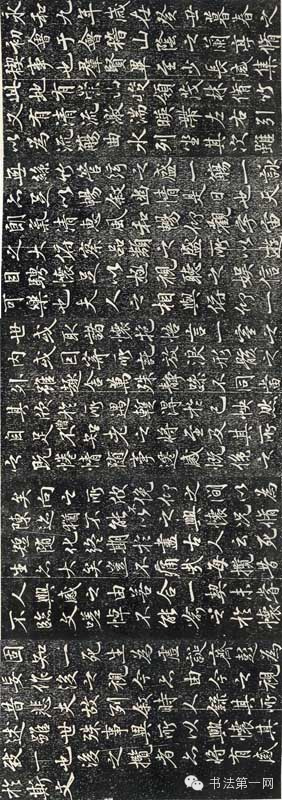 永和九年歲在癸丑暮春之初會
于會稽山陰之蘭亭脩稧事
也羣賢畢至少長咸集此地
有崇山峻領茂林脩竹又有清流激
湍暎帶左右引以為流觴曲水
列坐其次雖無絲竹管弦之
盛一觴一詠亦足以暢敘幽情
是日也天朗氣清惠風和暢仰
觀宇宙之大俯察品類之盛
所以遊目騁懷足以極視聽之
娛信可樂也夫人之相與俯仰
一世或取諸懷抱悟言一室之內
或因寄所託放浪形骸之外雖
趣舍萬殊靜躁不同當其欣
於所遇蹔得於己快然自足不
知老之將至及其所之既惓情
隨事遷感慨係之矣向之所
欣俛仰之閒以為陳迹猶不
能不以之興懷況脩短隨化終
期於盡古人云死生亦大矣豈
不痛哉每攬昔人興感之由
若合一契未嘗不臨文嗟悼不
能喻之於懷固知一死生為虛
誕齊彭殤為妄作後之視今
亦由今之視昔悲夫故列
敘時人錄其所述雖世殊事
異所以興懷其致一也後之攬
者亦將有感於斯文
書法第一网